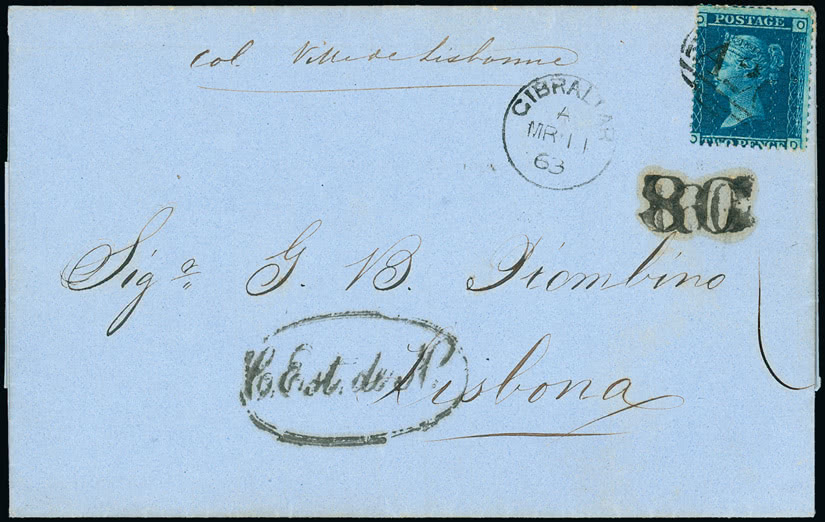 POSTAGE
col Ville de Lisbonne
GIBRALTAR
A
MR 11
63
80
Sigr G. B. Piombino
C. Est. de N.
Lisbona